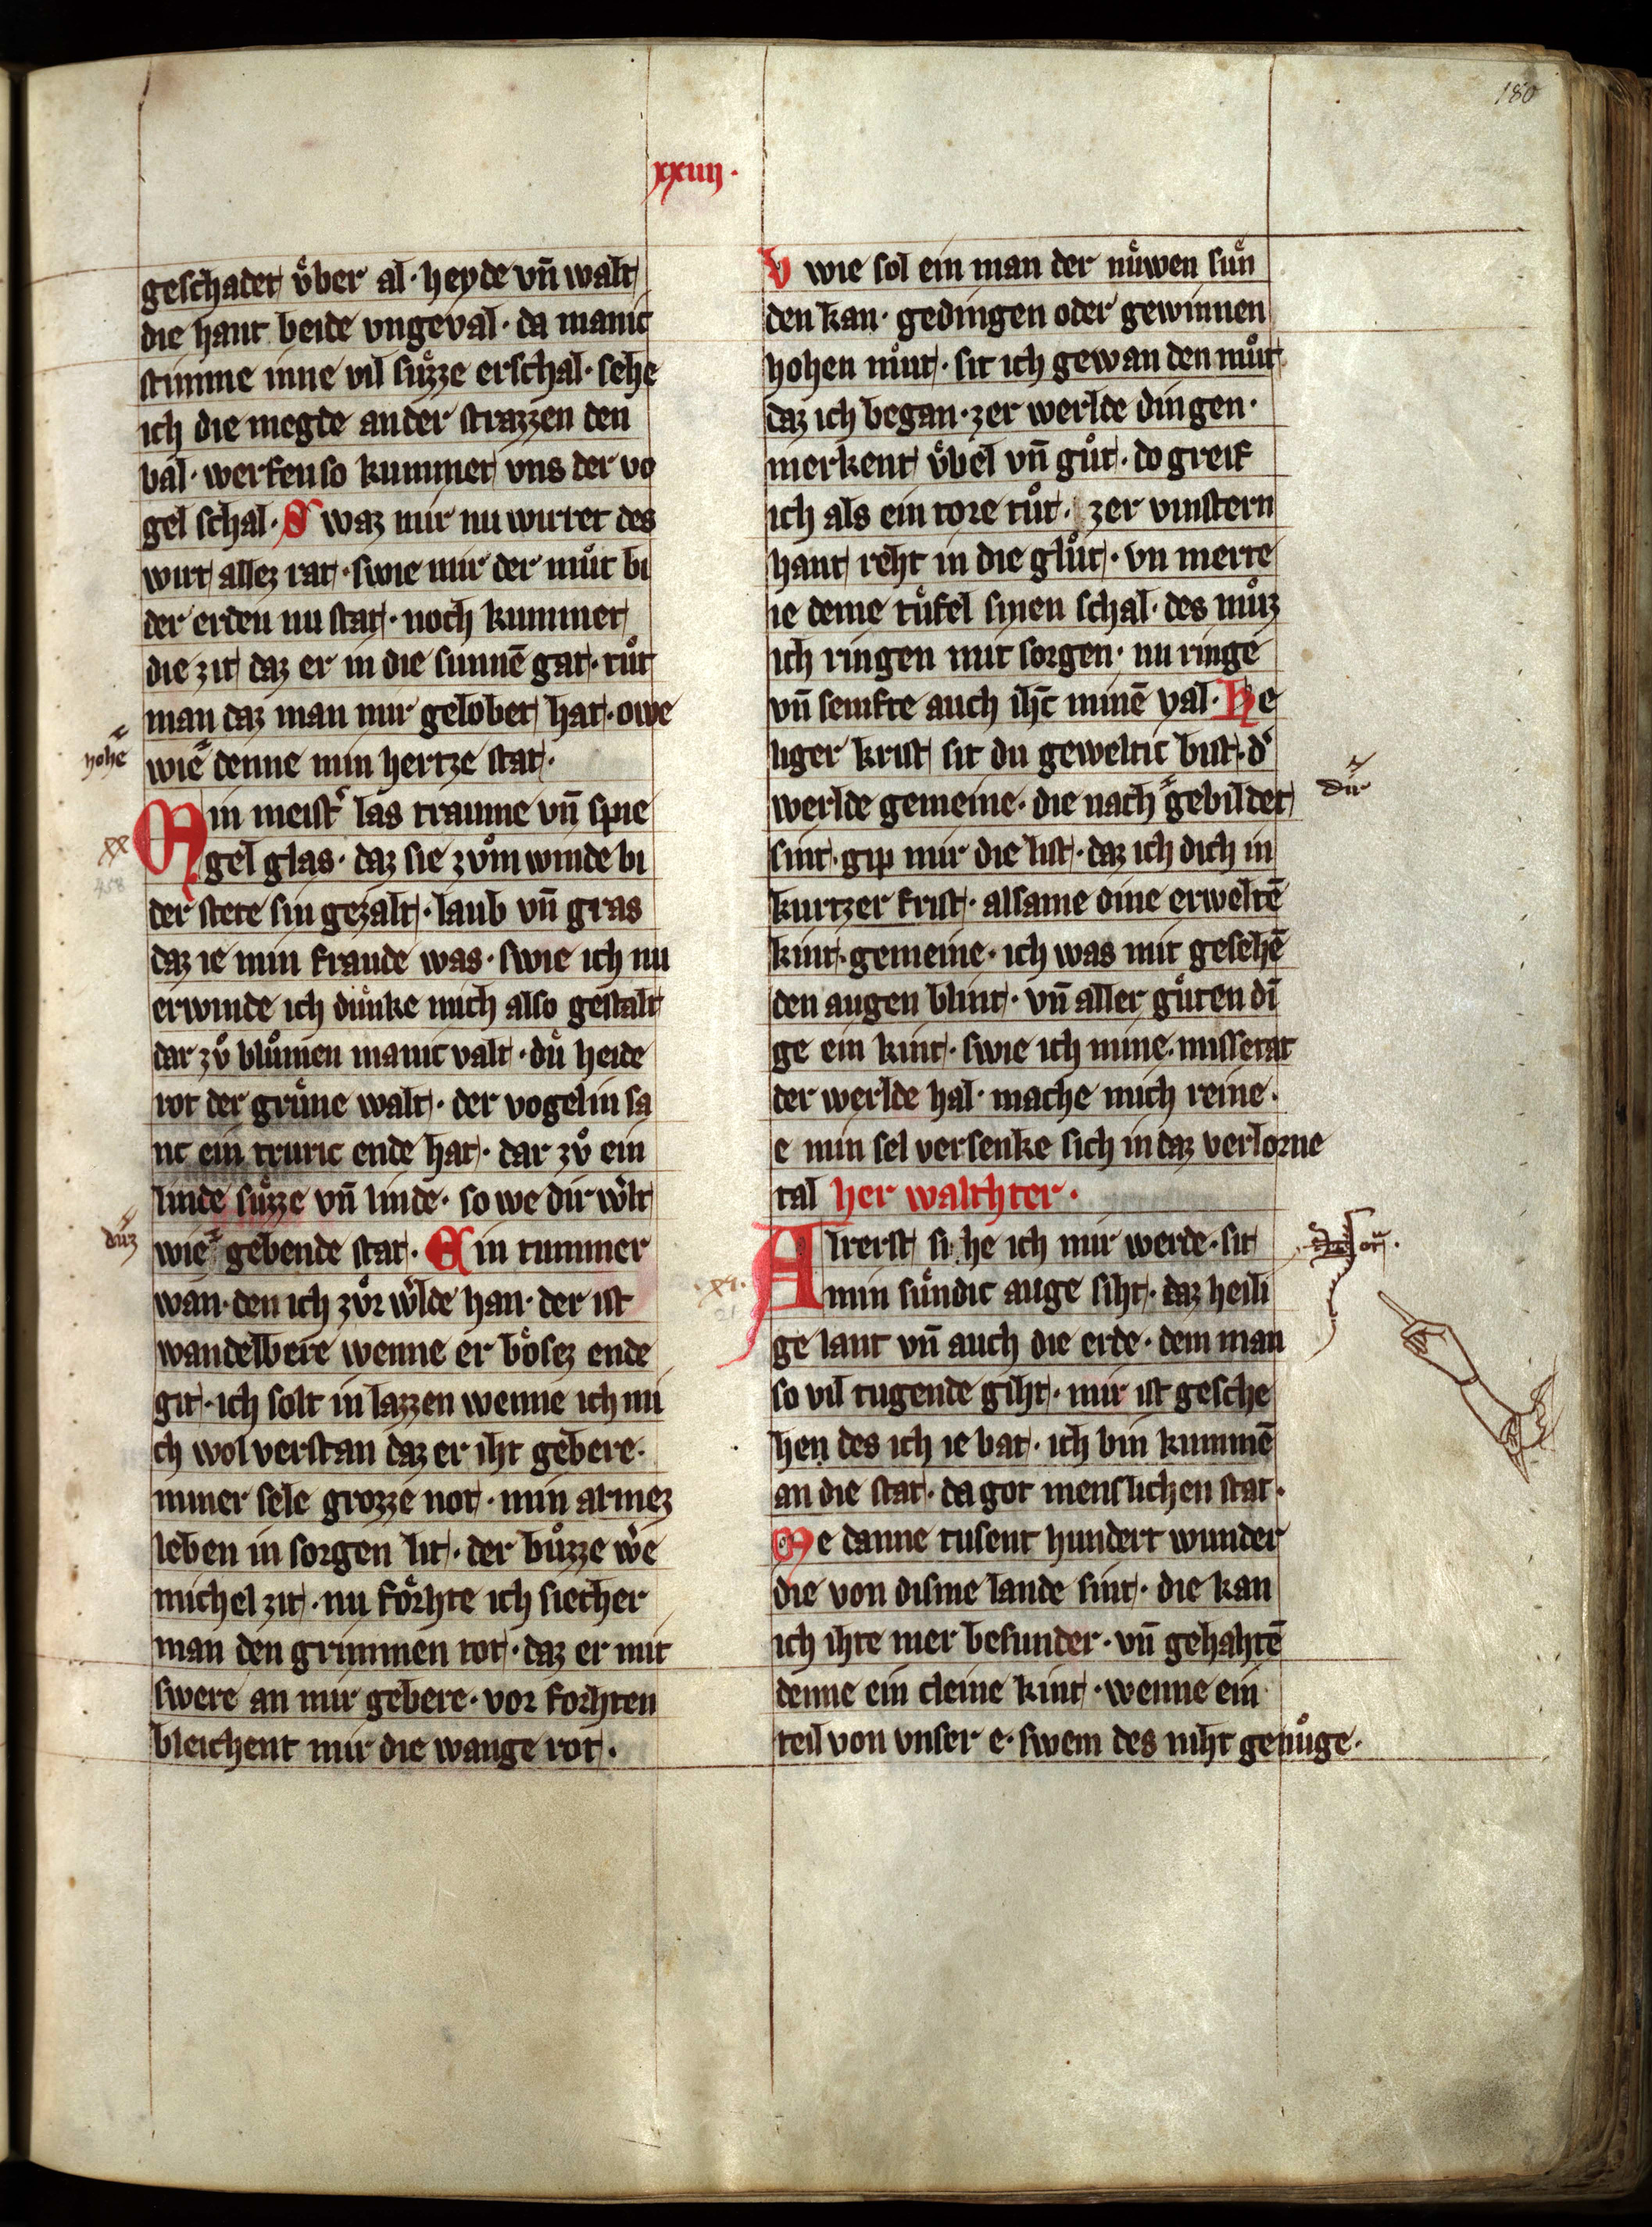 180
xxiiij·
geschadet vͤber al· heyde vn̄ walt
die hant beide vngeval· da manic
stimme inne vil suͤzze erschal· sehe
ich die megde an der strazzen den
bal· werfen so kummet vns der vo
gel schal· S waz mir nu wirret des
wirt allez rat· swie mir der muͦt bi
der erden nu stat· noch kummet
die zit daz er in die sunnē gat· tuͦt
man daz man mir gelobet hat· owe
hohē
wie denne min hertze stat·
Min meist̓ las traume vn̄ spie
xx
gel glas· daz sie zvͦm winde bi
458
der stete sin gezalt· laub vn̄ gras
daz ie min fraude was· swie ich nu
erwinde ich duͤnke mich also gestalt
dar zvͦ bluͦmen manicvalt· duͤ heide
rot der gruͤne walt· der vogelin sa
nc ein truric ende hat· dar zvͦ ein
linde suͤzze vn̄ linde· so we dir w̓lt
duz
wie gebende stat· Ein tummer
wan· den ich zvͦr w̓lde han· der ist
wandelbere wenne er boͤsez ende
git· ich solt in lazzen wenne ich mi
ch wol verstan daz er iht gebere·
miner sele grozze not· min armez
leben in sorgen lit· der buͦzze w̓e
michel zit· nu foͤrhte ich siecher
man den grimmen tot· daz er mit
swere an mir gebere· vor forhten
bleichent mir die wange rot·
V wie sol ein man der nuͤwen suͤn
den kan· gedingen oder gewinnen
hohen muͦt· sit ich gewan den muͦt
daz ich began· zer werlde dingen·
merkent vͤbel vn̄ guͦt· do greif
ich als ein tore tuͦt· zer vinstern
hant reht in die gluͦt· vn merte
ie deme tuͤfel sinen schal· des muͦz
ich ringen mit sorgen· nu ringe
vn̄ semfte auch ihc̄ minē val· He
liger krist sit du geweltic bist· d̓
werlde gemeine· die nach gebildet
dir
sint· gip mir die list· daz ich dich in
kurtzer frist· alsame dine erweltē
kint· gemeine· ich was mit gesehē
den augen blint· vn̄ aller guͤten di
ge ein kint· swie ich mine missetat
der werlde hal· mache mich reine·
e min sel versenke sich in daz verlorne
tal her walthter·
Alrerst sihe ich mir werde· sit
xxi·
21
min suͤndic auge siht· daz heili
ge lant vn̄ auch die erde· dem man
so vil tugende giht· mir ist gesche
hen des ich ie bat· ich bin kummē
an die stat· da got menslichen stat·
Me danne tusent hundert wunder
die von disme lande sint· die kan
ich ihte mer besunder· vn̄ gehahtē
denne ein cleine kint· wenne ein
teil von vnser e· swem des niht genuͦge·